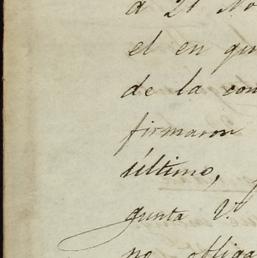 á 21 No
el en qu
de la con
firmaron
último,
gunta V.
no obliga